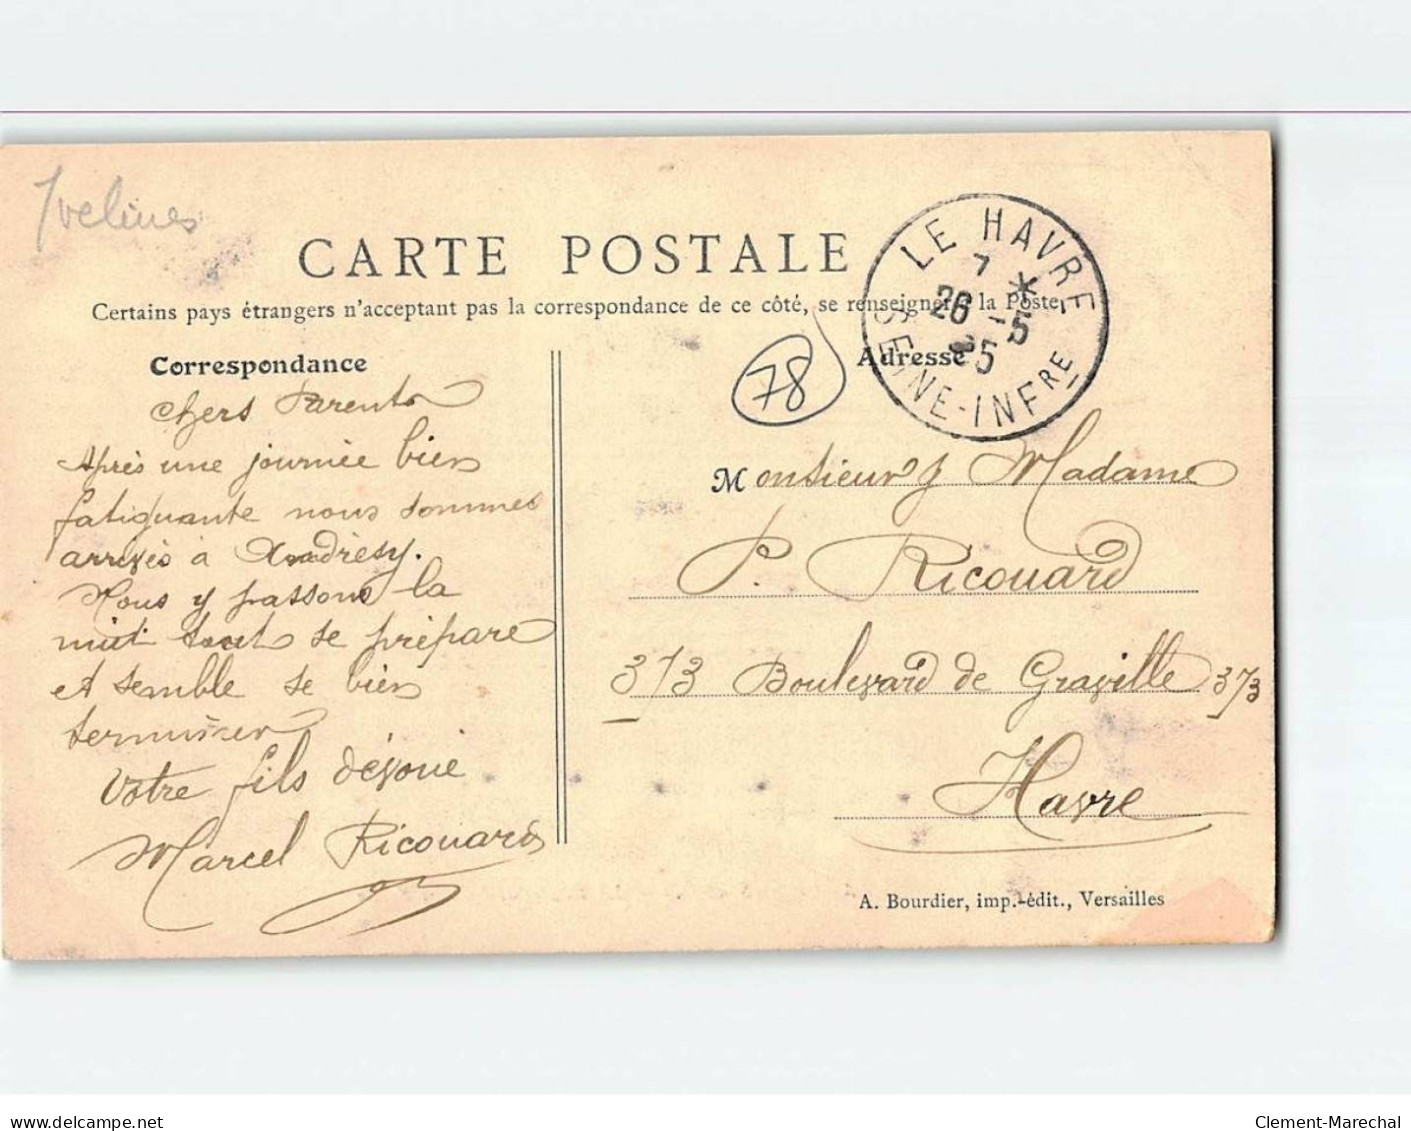 Yvelines
CARTE POSTALE
Certains pays étrangers n'acceptant pas la correspondance de ce côté, se renseigner à la Poste
LE HAVRE
7 *
26 -5
05
SEINE-INFRE
Correspondance
Adresse
78
Chers Parents
Après une journée bien
fatiguante nous sommes
arrivés à Andrésy.
Nous y passons la
nuit tout se prépare
et semble se bien
terminer
Votre fils dévoué
Marcel Ricouard
Monsieur & Madame
P. Ricouard
373 Boulevard de Graville 373
Havre
A. Bourdier, imp.-édit., Versailles
delcampe.net
Clement-Marechal